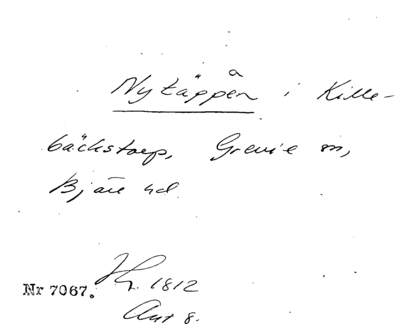 Nytäppån i Kille-
bäckstorp, Grevie sn,
Bjäre hd.
Nr 7067. Hg. 1812
Akt 8.